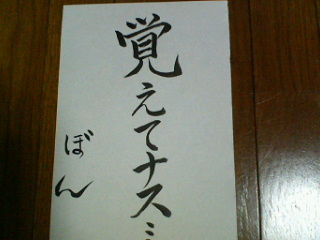 覚えてナスミ
ぼん